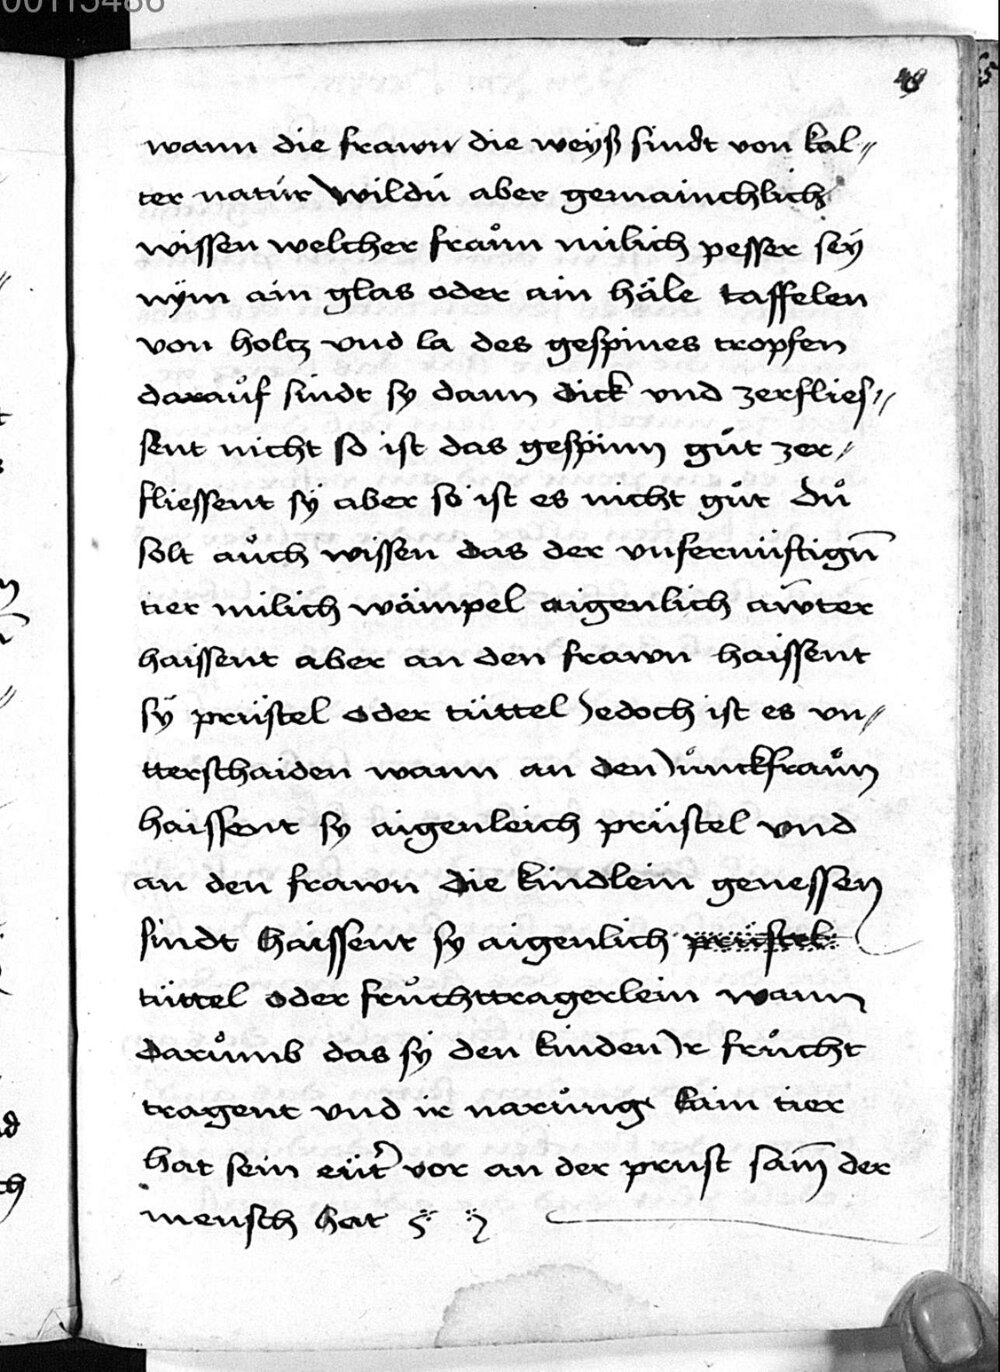 48
wann die frawn die weyß sindt von kal〃
ter natúr wildú aber gemainchlich
wissen welcher fraůn milich pesser seÿ
nÿm ain glas oder ain häle taffelen
von holtz vnd la des gespines tropfen
darauͦf sindt sy dann dick vnd zerflies〃
sent nicht so ist das gespinn guͦt zer〃
fliessent sÿ aber so ist es nicht guͦt Duͦ
solt auͦch wissen das der vnfernüftign̄
tier milich wämpel aigenlich aẇter
haissent aber an den frawn haissent
sÿ prüstel oder tüttel Jedoch ist es vn〃
tterschaiden wann an den Juͦnckfrauͦn
haissent sy aigenleich prüstel vnd
an den frawn die kindlein genessen
sindt haissent sy aigenlich prüstel
tüttel oder fruͦchttragerlein wann
daruͦmb das sÿ den kinden Ir fruͦcht
tragent vnd ir naruͦng kain tier
hat sein eüt͛ vor an der prust sam̄ der
mensch hat